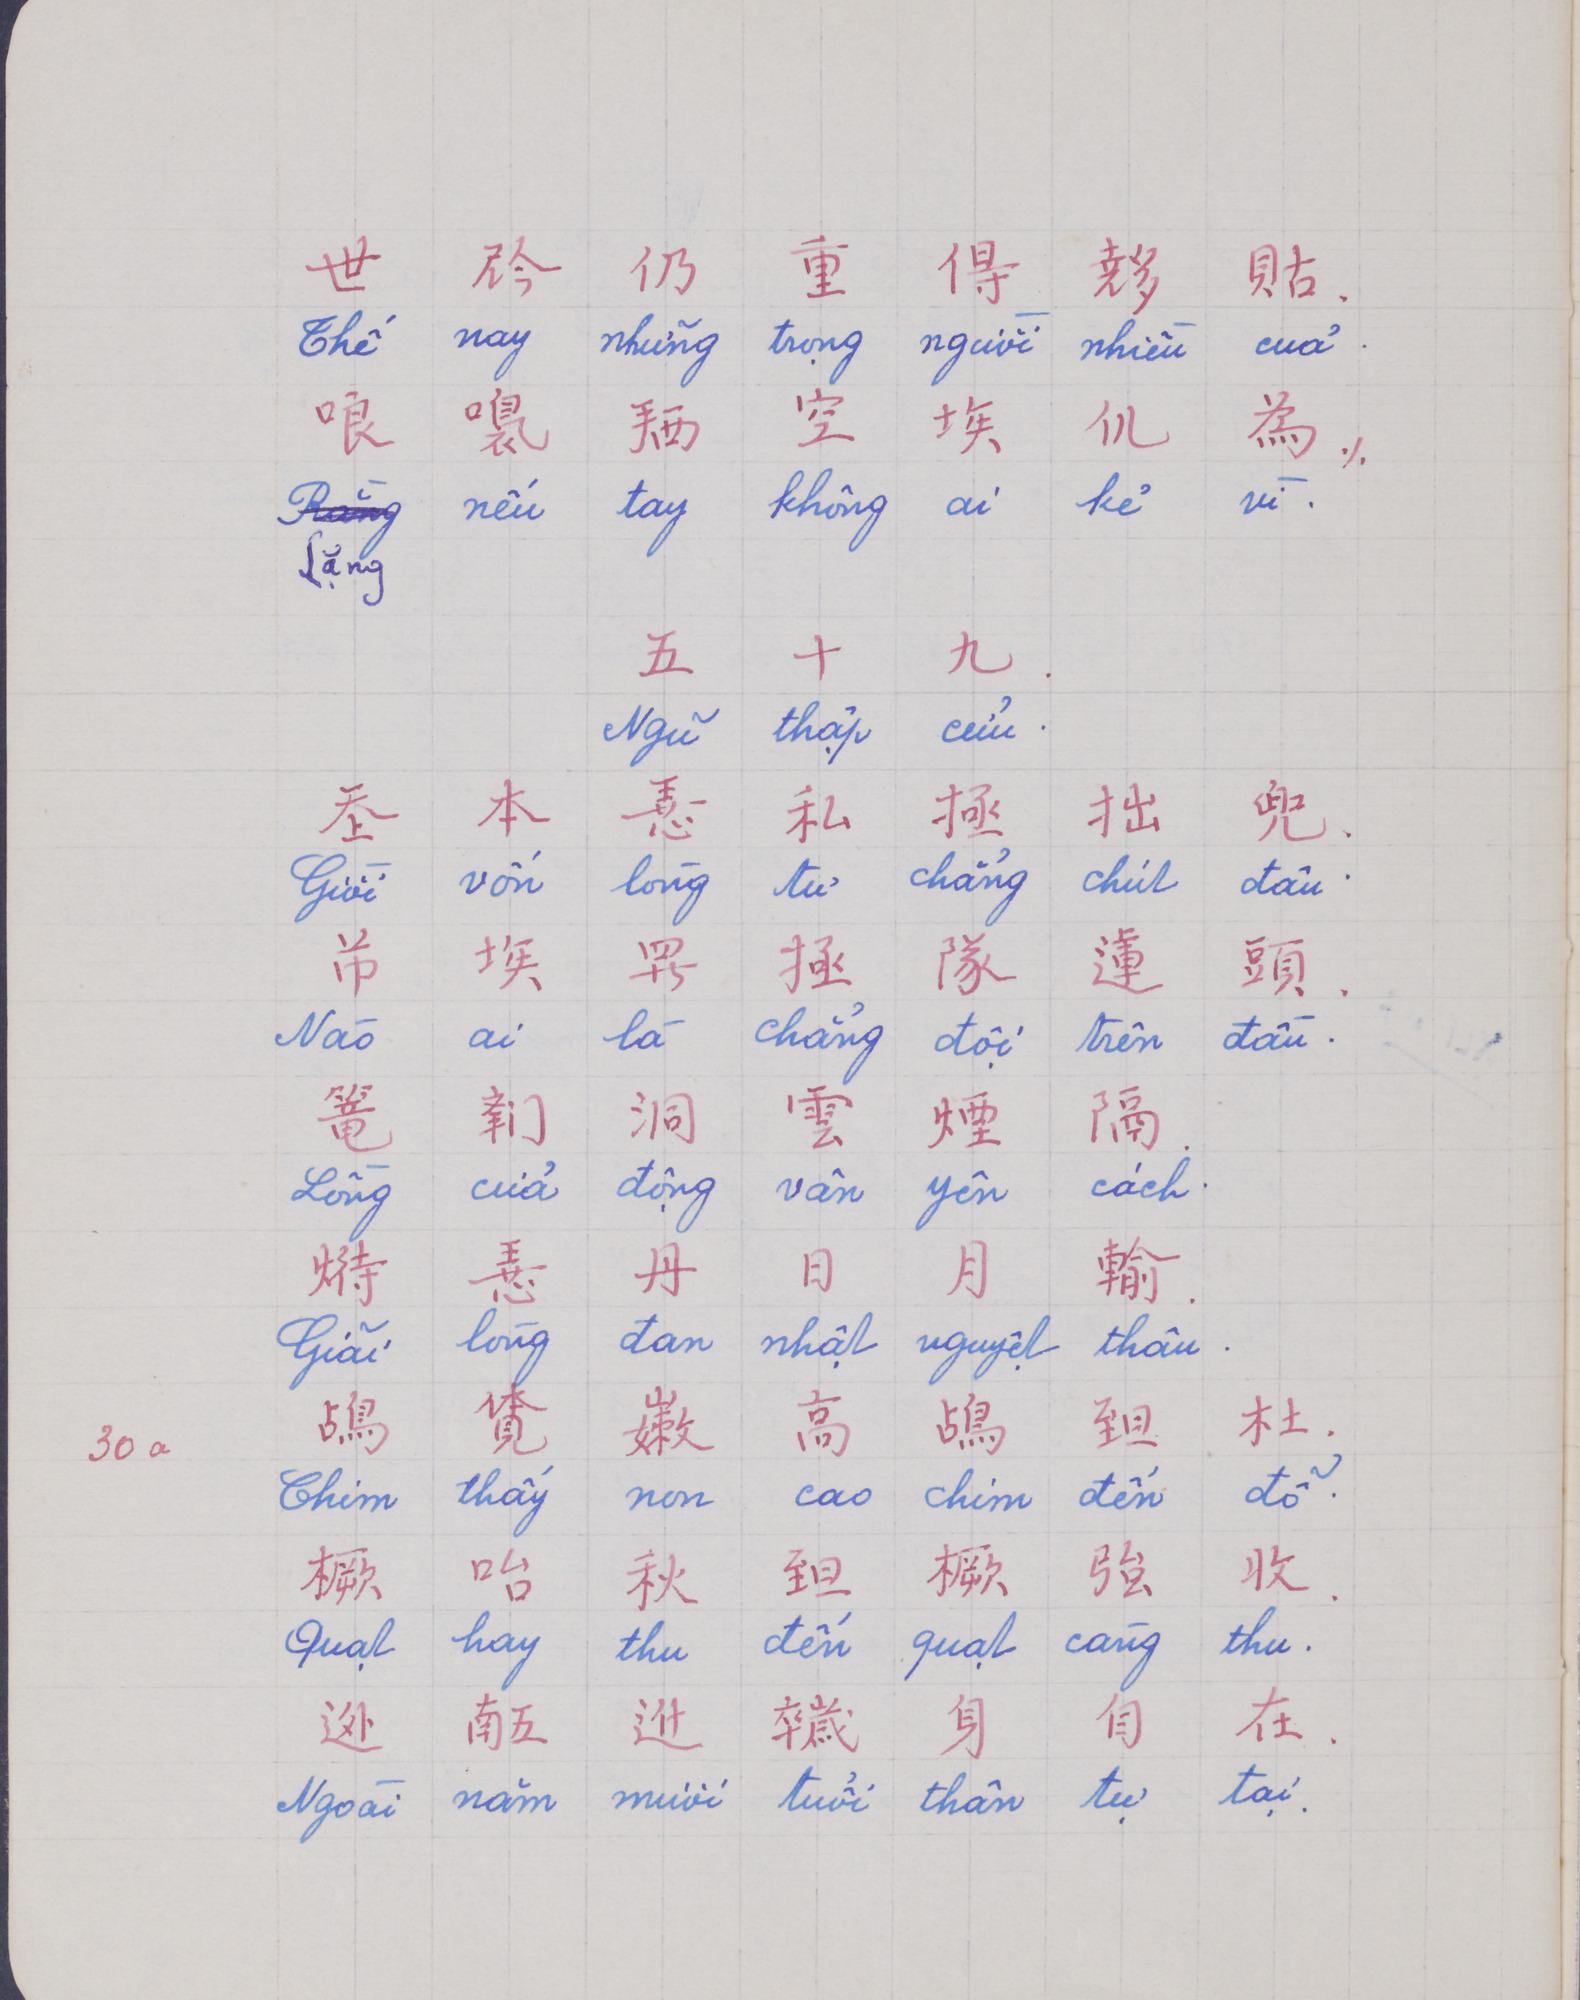 世 㝵 仍 重 得 𡗉 貼.
Thế nay những trọng người nhiều của.
哴 㖏 𢬣 空 埃 仉 為 ./.
Rằng nếu tay không ai kẻ vì.
Lặng
五 十 九.
Ngũ thập cửu.
𡗶 本 𢚸 私 拯 拙 兜.
Giời vốn lòng tư chẳng chút đâu.
芇 埃 𱺵 拯 隊 蓮 頭.
Nào ai là chẳng đội trên đầu.
篭 𨷶 洞 雲 煙 隔.
Lồng cửa động vân yên cách.
𤋵 𢚸 丹 日 月 輸.
Giãi lòng đan nhật nguyệt thâu.
30a
鴣 覧 嫩 高 鴣 𦤾 杜.
Chim thấy non cao chim đến đỗ.
橛 咍 秋 𦤾 橛 強 收.
Quạt hay thu đến quạt càng thu.
𨒺 𠄼 𨑮 𢆫 身 自 在.
Ngoài năm mươi tuổi thân tự tại.